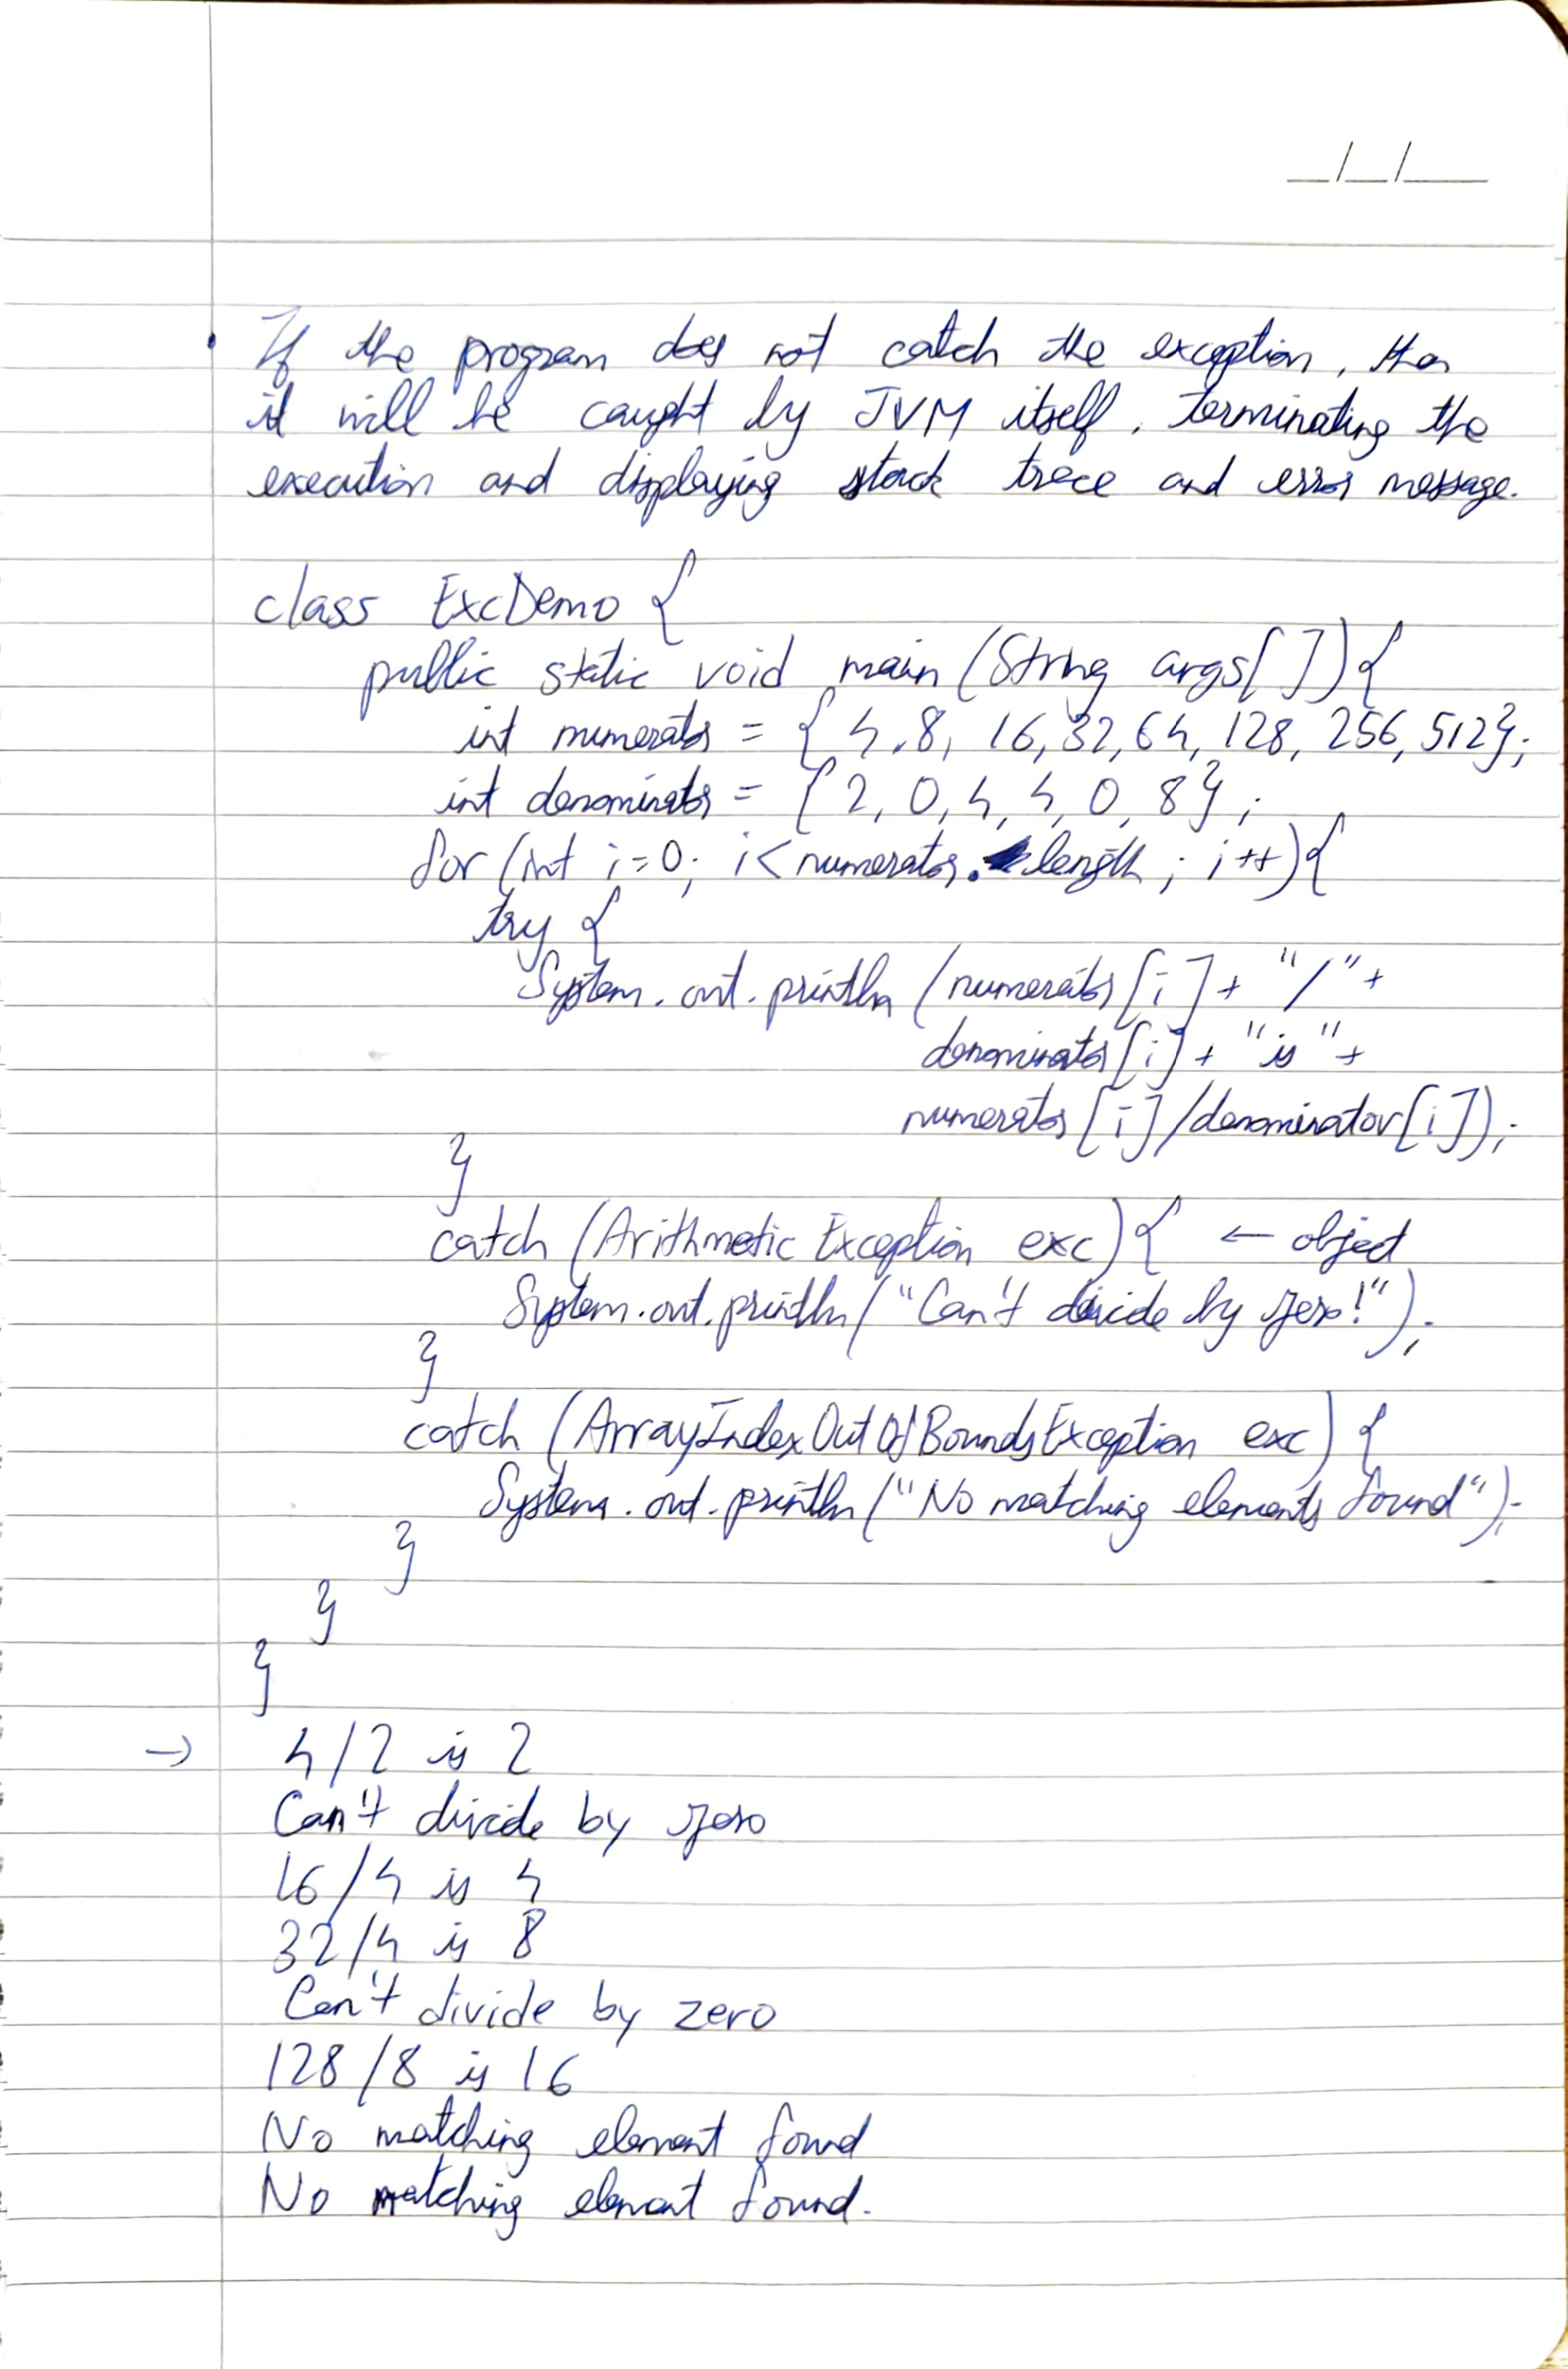 __/__/____
• If the program does not catch the exception, then
it will be caught by JVM itself, terminating the
execution and displaying stack trace and error message.
class ExcDemo {
public static void main (String args[]){
int numerator = { 4, 8, 16, 32, 64, 128, 256, 512};
int denominator = {2, 0, 4, 4, 0, 8} ;
for (int i=0; i<numerator.length ; i++){
try {
System.out.println (numerator[i] + "/" +
denominator[i] + "is" +
numerator[i]/denominator[i]);
}
catch (Arithmetic Exception exc) { ← object
System.out.println("Can't divide by zero!");
}
catch (ArrayIndexOutOfBoundsException exc) {
System.out.println("No matching elements found");
}
}
}
→ 4/2 is 2
Can't divide by zero
16/4 is 4
32/4 is 8
Can't divide by zero
128/8 is 16
No matching element found
No matching element found.